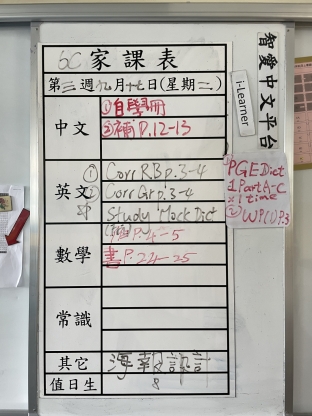 6C 家課表
第三週九月十七日(星期二)
中文
①自學冊
②補P.12-13
英文
① Corr RB p.3-4
② Corr Gr p.3-4
Study Mock Dict
數學
P.4-5
書P.24-25
常識
其它
海報設計
值日生
8
智愛中文平台
i-Learner
PGE Dict
1 Part A-C
x 1 time
② WP(U)P.3